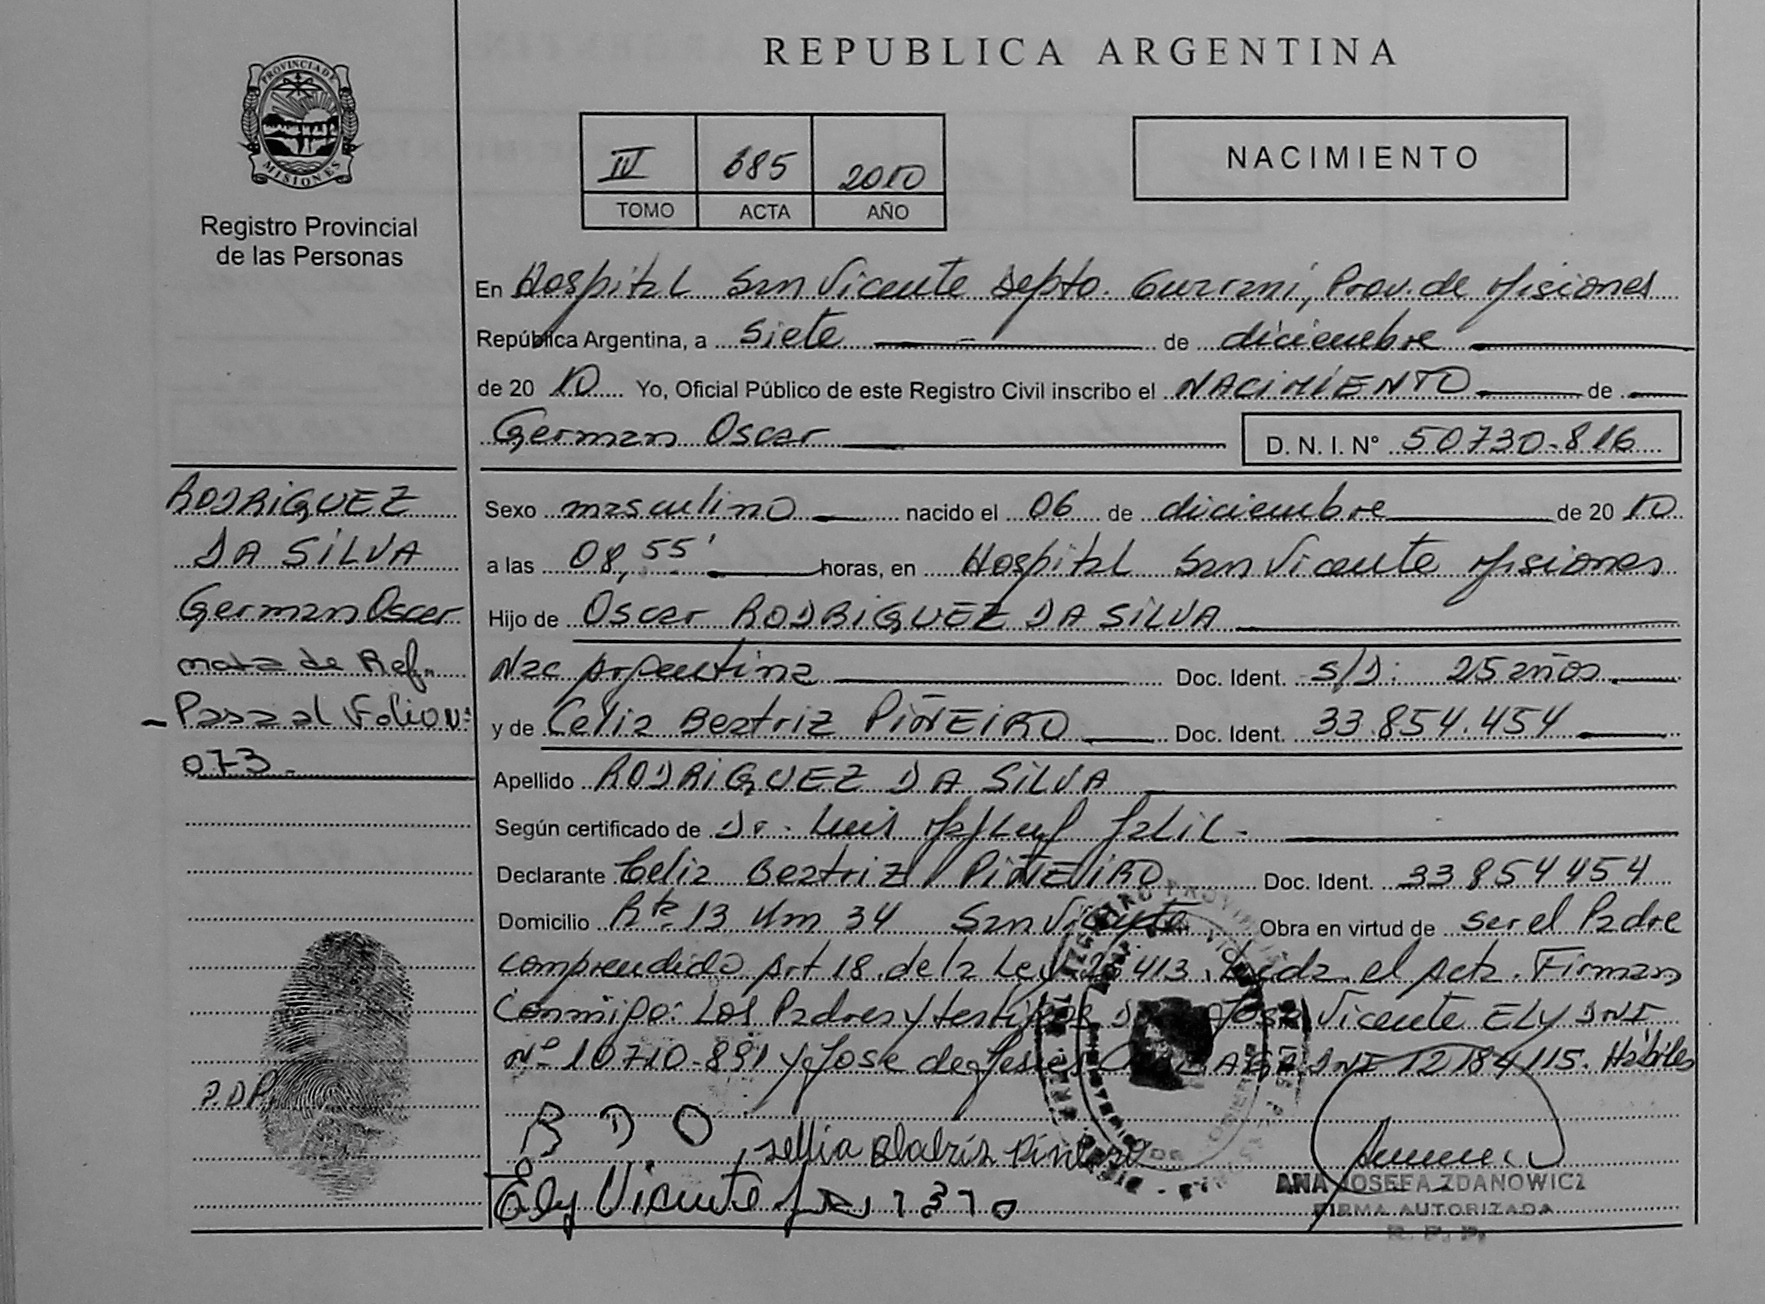 REPUBLICA ARGENTINA
PROVINCIA DE
MISIONES
Registro Provincial
de las Personas
IV 685 2010
TOMO ACTA AÑO
NACIMIENTO
En Hospital San Vicente Depto. Guarani, Prov. de Misiones
República Argentina, a siete de diciembre
de 2010 Yo, Oficial Público de este Registro Civil inscribo el NACIMIENTO de
German Oscar D. N. I. N° 50730-816
RODRIGUEZ
DA SILVA
German Oscar
nota de Ref.
Pasa al Folio N:
073.
Sexo masculino nacido el 06 de diciembre de 2010
a las 08,55' horas, en Hospital San Vicente Misiones
Hijo de Oscar RODRIGUEZ DA SILVA
Nac Argentina Doc. Ident. S/D: 25 años
y de Celia Beatriz PIÑEIRO Doc. Ident. 33.854.454
Apellido RODRIGUEZ DA SILVA
Según certificado de Dr. Luis
Declarante Celia Beatriz PIÑEIRO Doc. Ident. 33854454
Domicilio Rta 13 Km 34 San Vicente Obra en virtud de ser el Padre
comprendido Art 18 de la Ley 26413. Leida el Acta. Firman
Conmigo: Los Padres y testigos Vicente ELY DNI
Nº 10710-891 y Jose de Jesus DNI 12184115. Habiles
P.D.P.
R D O
Ely Vicente
ANA JOSEFA ZDANOWICZ
FIRMA AUTORIZADA
R. P. P.